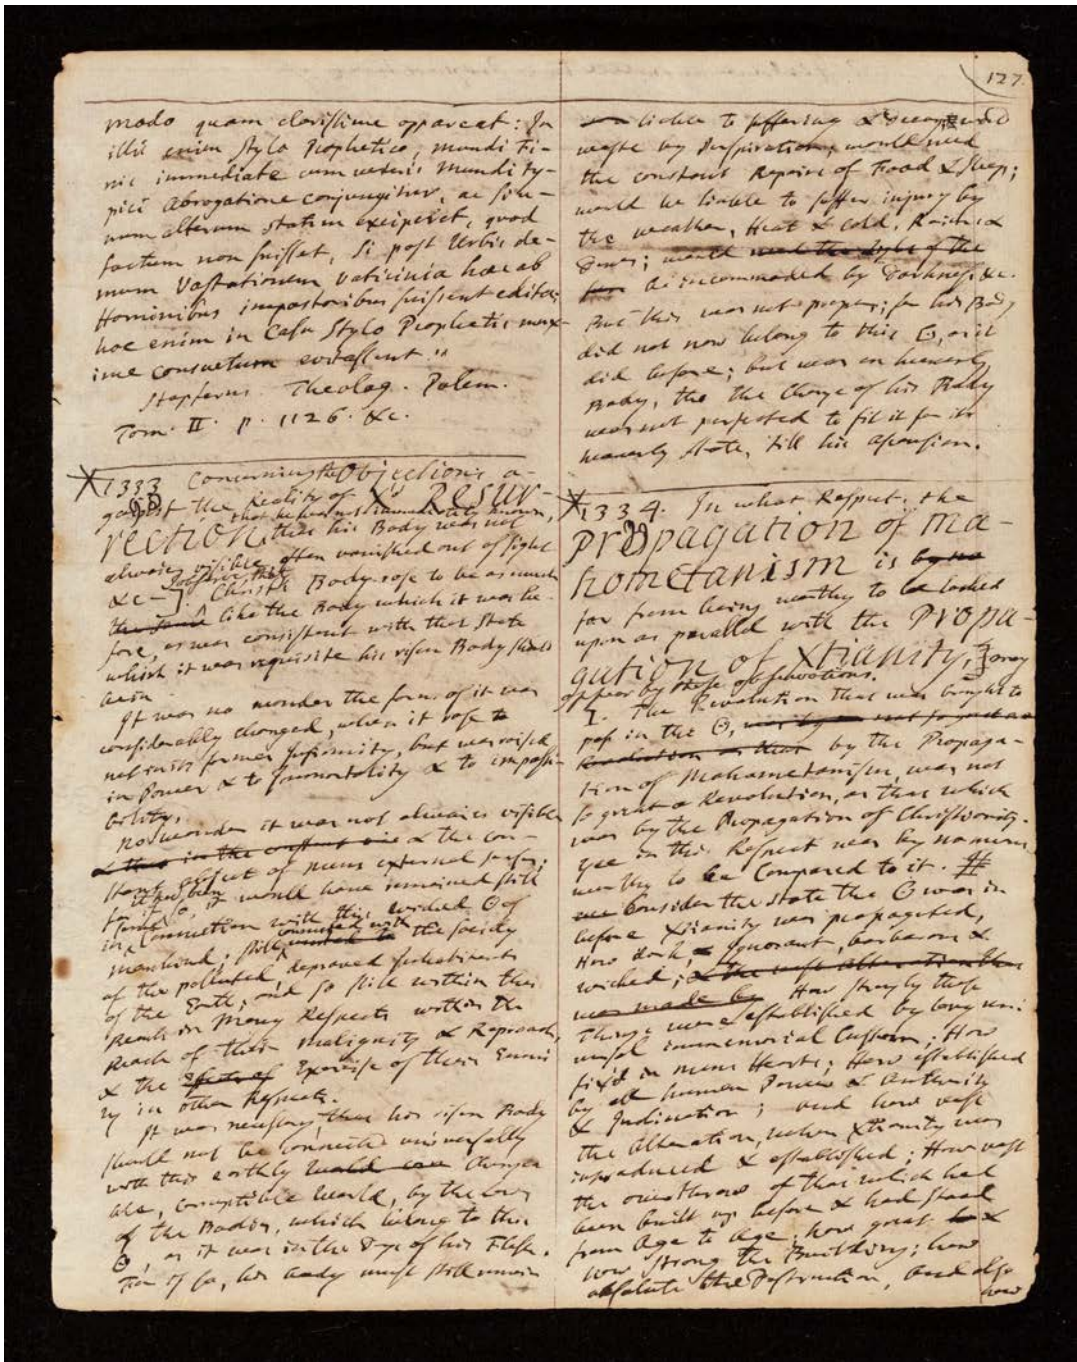 127.
modo quam clarissime appareat: In
illis enim Stylo Prophetico, mundi Fi-
nis immediate cum veteris Mundi ty-
pici Abrogatione conjungitur, ac si u-
num alterum statim exciperet, quod
factum non fuisset, si post Urbis de-
mum Vastationem Vaticinia haec ab
Hominibus impostoribus fuissent edita;
hoc enim in Casu Stylo Prophetis max-
ime consuetum evitassent."
Stapferus. Theolog. Polem.
Tom. II. p. 1126. &c.
1333 Concerning the Objections a-
gainst the Reality of X's Resur-
rection, that he was not immediately known,
that his Body was not
always visible, often vanished out of sight
&c—]. Observe that Christs Body rose to be as much
like the Body which it was be-
fore, as was consistent with that State
which it was requisite his risen Body should
be in
It was no wonder the form of it was
considerably changed, when it rose to
not in its former Infirmity, but was raised
in Power & to Immortality & to impassi-
bility,
no wonder it was not always visible
& the con-
stant object of mens external senses;
for if it had been so, it would have remained still
in Connection with this wicked ʘ of
mankind; still connected with the society
of the polluted, depraved Inhabitants
of the Earth, and so still within their
Reach in Many Respects within the
Reach of their malignity & Reproach,
& the Exercise of their Enmi
ty in other Respects.
It was necessary, that his risen Body
should not be connected universally
with this earthly changea
ble, corruptible World, by the laws
of the Bodies, which belong to this
ʘ, as it was in the Days of his Flesh.
For if so, his body must still remain
liable to suffering & decay, would
waste by Perspiration, would need
the constant Repairs of Food & Sleep;
would be liable to suffer injury by
the weather, Heat & Cold, Rains &
Dews; would
be incommoded by Darkness &c.
But this was not proper; for his Body
did not now belong to this ʘ, as it
did before; but was an heavenly
Body, tho the Change of his Body
was not perfected to fit it for its
heavenly State, till his Ascension.
1334. In what Respect, the
Propagation of Ma-
hometanism is by no
far from being worthy to be looked
upon as parallel with the Propa-
gation of Xtianity, may
appear by these observations.
1. The Revolution that was brought to
pass in the ʘ,
by the Propaga-
tion of Mahometanism, was not
so great a Revolution, as that which
was by the Propagation of Christianity.
yea in this Respect was by no means
worthy to be Compared to it.
Consider the state the ʘ was in
before Xtianity was propagated,
How dark, & ignorant, barbarous &
wicked;
How strongly these
Things were established by long uni-
versal immemorial Custom; How
fix'd in mens Hearts; How established
by all human Power & Authority
& Inclination; and how vast
the Alteration, when Xtianity was
introduced & established; How vast
the overthrow of that which had
been built up before & had stood
from Age to Age; how great &
how strong the Building; how
absolute the Destruction, and also
how